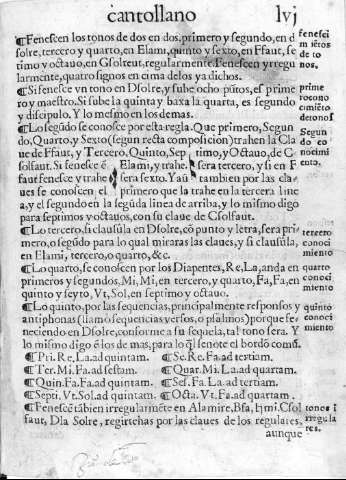 cantollano lvj
¶Fenescen los tonos de dos en dos, primero y segundo, en d
solre, tercero y quarto, en Elami, quinto y sexto, en Ffaut, se
timo y octauo, en Gsolreut, regularmente. Fenescen yrregu
larmente, quatro signos en cima delos ya dichos.
fenesci
miẽtos
de to
nos.
¶Si fenesce vn tono en Dsolre, y sube ocho pũtos, es prime
ro y maestro. Si sube la quinta y baxa la quarta, es segundo
y discipulo. Y lo mesmo en los demas.
prime
ro cono
cimiẽto
de tonos
¶Lo segũdo se conosce por esta regla. Que primero, Segun
do, Quarto, y Sexto (segun recta composicion) trahen la Claue
de Ffaut, y Tercero, Quinto, Sep timo, y Octauo, de C
solfaut. Si fenesce ẽ Elami, y trahe sera tercero, y si en F
faut fenesce y trahe sera sexto. Y aũ tambien por las cla
ues se conoscen el primero que la trahe en la tercera line
a, y el segundo en la segũda linea de arriba, y lo mismo digo
para septimos y octauos, con su claue de Csolfaut.
Segun
do co
noci
mi
ento.
¶Lo tercero, si clausúla en Dsolre, cõ punto y letra, sera pri
mero, o segũdo para lo qual miraras las claues, y si clausúla,
en Elami, tercero, o quarto, &c.
tercero
conoci
miento
¶Lo quarto, se conoscen por los Diapentes, Re, La, anda en
primeros y segundos, Mi, Mi, en tercero, y quarto, Fa, Fa, en
quinto y seyto, Vt, Sol, en septimo y octauo.
quarto
conoci
miento
¶Lo quinto, por las sequencias, principalmente responsos y
antiphonas (llamo sequencias versos, o psalmos) porque fe
neciendo en Dsolre, conforme a su sequela, tal tono sera. Y
lo mismo digo ẽ los de mas, para lo q̃l se note el bordõ comũ.
quinto
conoci
miento
¶Pri. Re. La. ad quintam. ¶Se. Re. Fa. ad tertiam.
¶Ter. Mi. Fa. ad sestam. ¶Quar. Mi. La. ad quartam.
¶Quin. Fa. Fa. ad quintam. ¶Ses. Fa. La. ad tertiam.
¶Septi. Vt. Sol. ad quintam ¶Octa. Vt. Fa. ad quartam.
¶Fenescẽ tãbien irregularmẽte en Alamire, Bfa, ♮mi. Csol
faut, Dla Solre, regirtehas por las claues de los regulares,
aunque
tonos i
rregula
res.